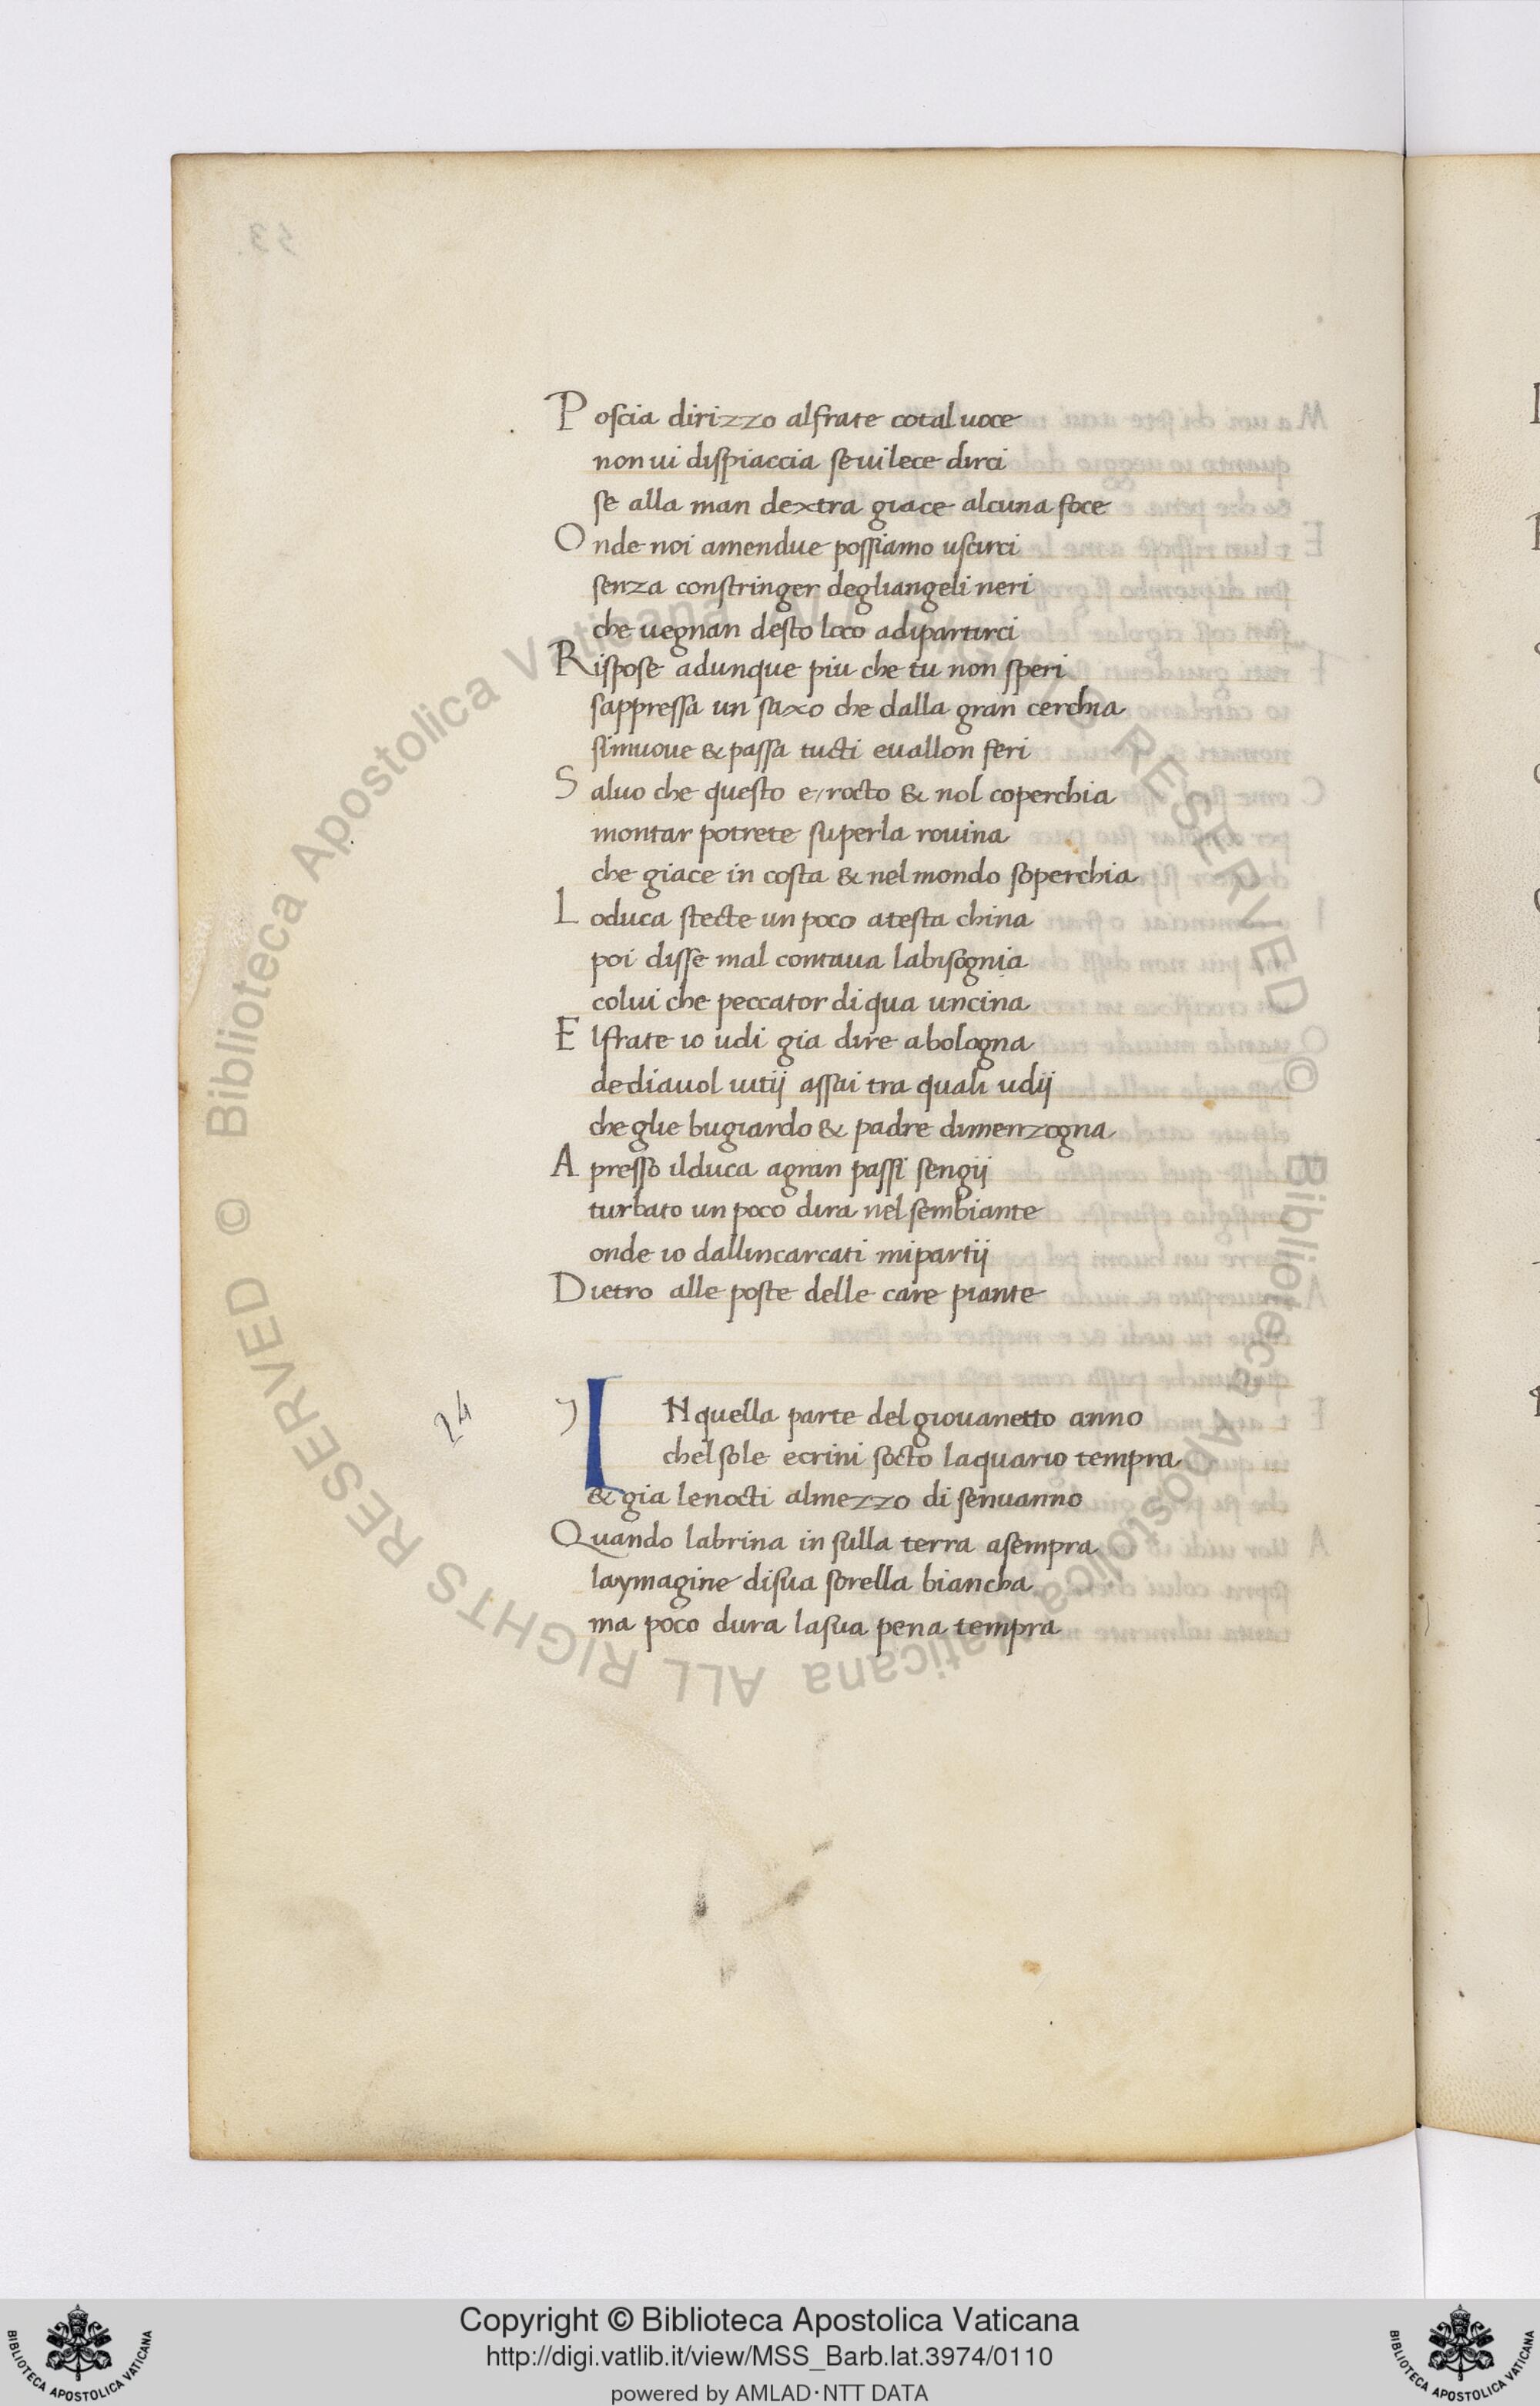 Poscia dirizzo alfrate cotal uoce
non ui dispiaccia se uilece dirci
se alla man dextra giace alcuna foce
Onde noi amendue possiamo uscirci
senza constringer degliangeli neri
che uegnan desto loco adipartirci
Rispose adunque piu che tu non speri
sappressa un saxo che dalla gran cerchia
simuoue & passa tucti euallon feri
Saluo che questo e/rocto & nol coperchia
montar potrete superla rouina
che giace in costa & nel mondo soperchia
Loduca stecte un poco atesta china
poi disse mal contaua labisognia
colui che peccator di qua uncina
Elfrate io udi gia dire abologna
dediauol uitij assai tra quali udij
che glie bugiardo & padre dimenzogna
Apresso ilduca agran passi sengij
turbato un poco dira nel sembiante
onde io dallincarcati mipartij
Dietro alle poste delle care piante
24
IN quella parte del giouanetto anno
chel sole ecrini socto laquario tempra
& gia lenocti almezzo di senuanno
Quando labrina in sulla terra asempra
laymagine disua sorella biancha
ma poco dura lasua pena tempra
© Biblioteca Apostolica Vaticana ALL RIGHTS RESERVED
© Biblioteca Apostolica Vaticana ALL RIGHTS RESERVED
Copyright © Biblioteca Apostolica Vaticana
http://digi.vatlib.it/view/MSS_Barb.lat.3974/0110
powered by AMLAD·NTT DATA
BIBLIOTECA APOSTOLICA VATICANA
BIBLIOTECA APOSTOLICA VATICANA